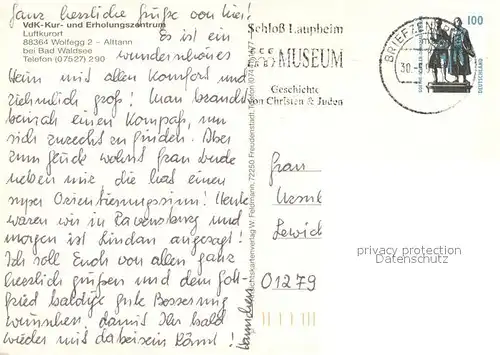 Ganz herzliche Grüße von hier!
VdK-Kur- und Erholungszentrum
Luftkurort
88364 Wolfegg 2 - Alttann
bei Bad Waldsee
Telefon (07527) 290
Es ist ein
wunderschönes
Heim mit allen Komfort und
ziemlich groß! Man braucht
beinah einen Kompaß, um
sich zurecht zu finden. Aber
zum Glück wohnt Frau
neben mir die hat einen
super Orientierungssinn! Heute
waren wir in Ravensburg und
morgen ist Lindau angesagt!
Ich soll Euch von allen ganz
herzlich grüßen und dem Gott-
fried baldige gute Besserung
wünschen, damit Ihr bald
wieder mit dabeisein könnt!
Schloß Laupheim
MUSEUM
Geschichte
von Christen & Juden
BRIEFZENTRUM
30.
100
DEUTSCHLAND
Ansichtskartenverlag W. Feldmann, 72250 Freudenstadt, Telefon
Frau
01279
privacy protection
Datenschutz